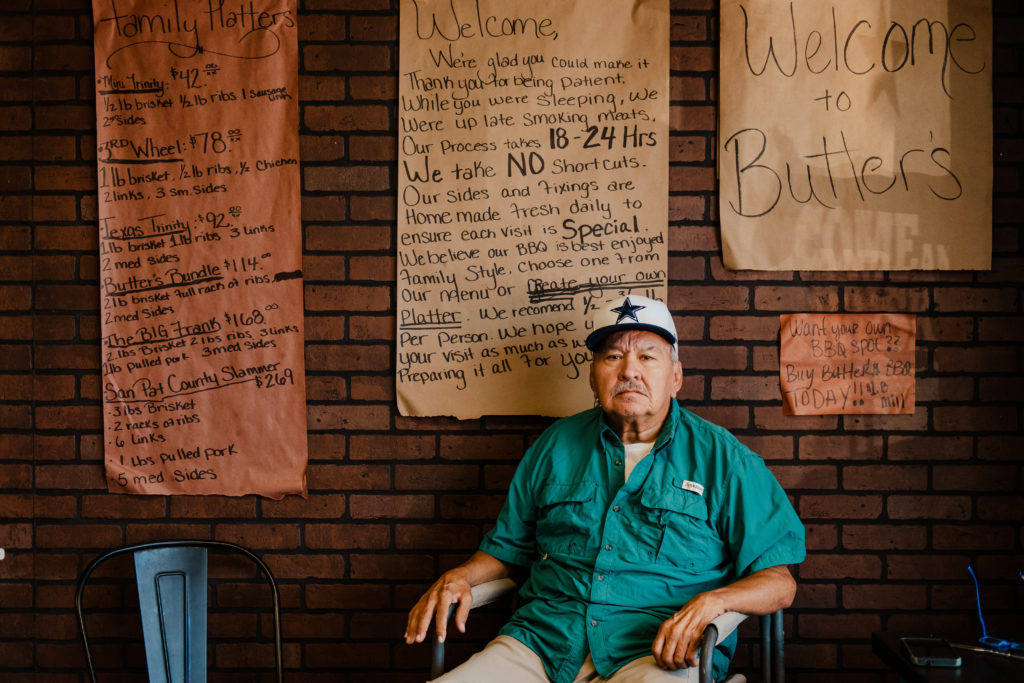 Family Platters
Mini Trinity: $42.00
½ lb brisket ½ lb ribs 1 sausage link
2 sides
3RD Wheel: $78.00
1 lb brisket, ½ lb ribs, ½ Chicken
2 links, 3 sm. sides
Texas Trinity: $92.00
1 lb brisket 1 lb ribs 3 links
2 med sides
Butter's Bundle $114.00
2 lb brisket full rack of ribs,
2 med sides
The BIG Frank $168.00
2 lbs Brisket 2 lbs ribs, 3 links
1 lb pulled pork 3 med sides
San Pat County Slammer
$269
• 3 lbs Brisket
• 2 racks of ribs
• 6 links
lbs pulled pork
• 5 med sides
Welcome,
We're glad you could make it
Thank you for being patient.
While you were sleeping, we
were up late smoking meats.
Our Process takes 18-24 Hrs
We take NO Shortcuts.
Our sides and fixings are
Homemade fresh daily to
ensure each visit is Special.
We believe our BBQ is best enjoyed
Family Style. Choose one from
our menu or Create your own
Platter. We recomend ½
Per Person. We hope
your visit as much as
Preparing it all for you
Welcome
to
Butter's
Want your own
BBQ SPOT??
Buy Butter's BBQ
TODAY!! 1.8
mill